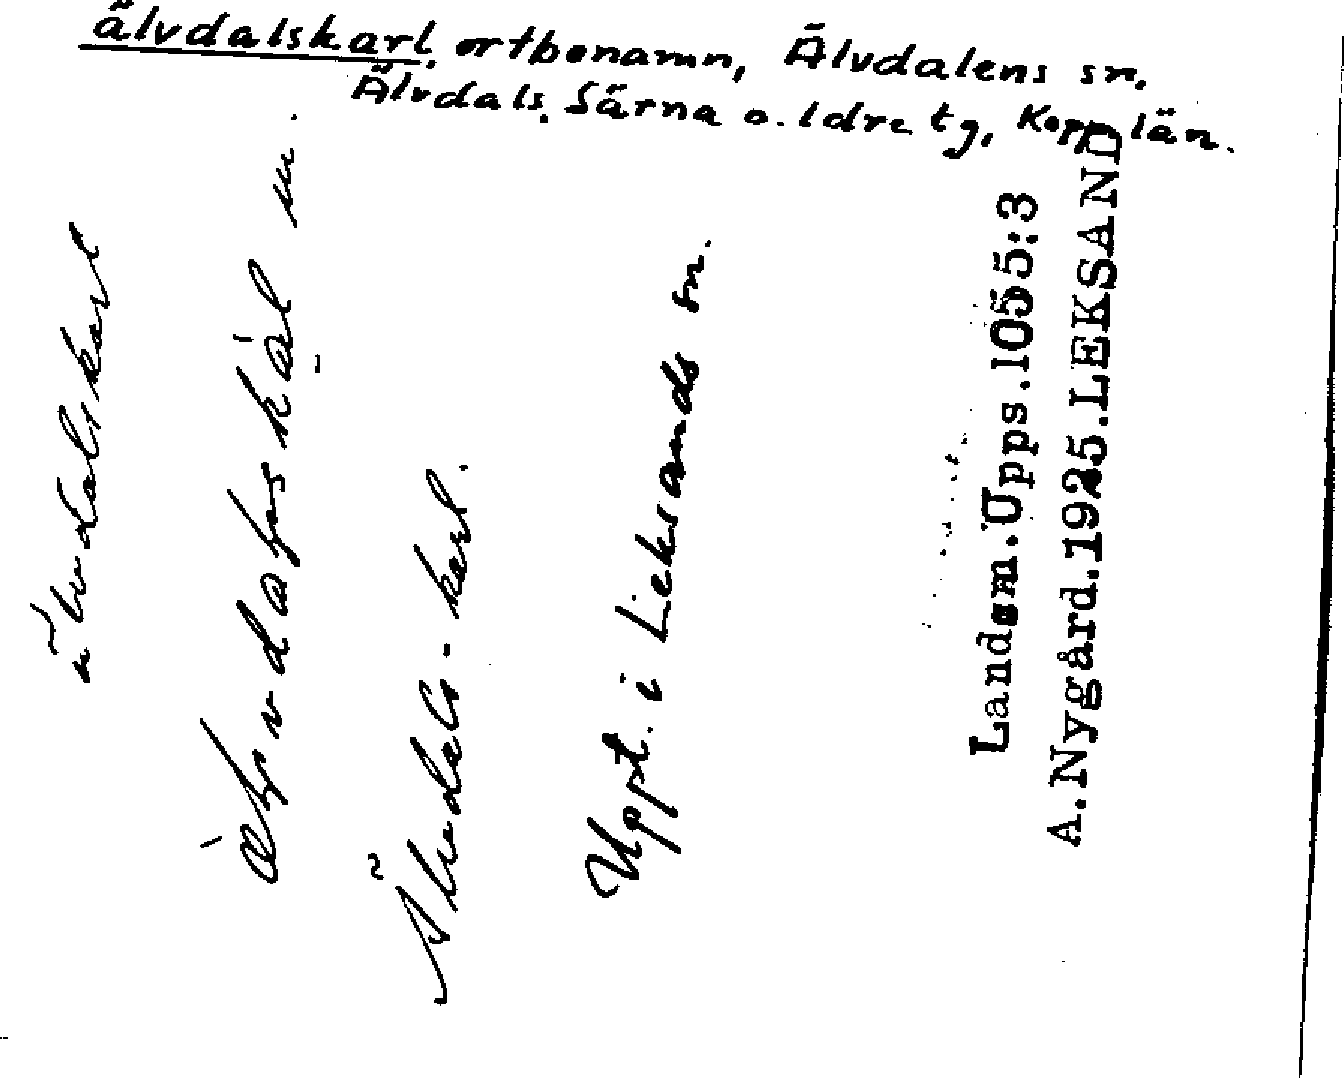 älvdalskarl, ortbonamn, Älvdalens sn.
Älvdals, Särna o. Idre tg, Kopp. län.
älvdalskarl
m.
Älvdals-karl.
Uppt. i Leksands sn.
Landsm.Upps.1055:3
A.Nygård.1925.LEKSAND